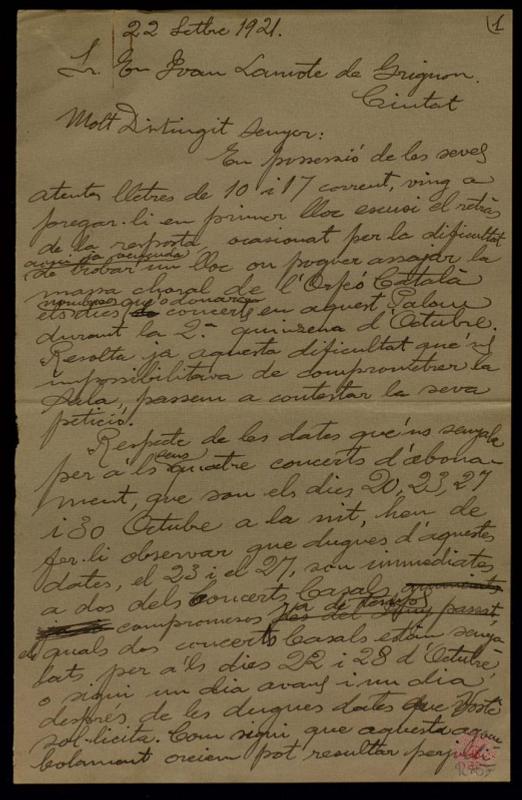 22 Setbre 1921.
(1
Sr. En Joan Lamote de Grignon.
Ciutat
Molt Distingit senyor:
En possessió de les seves
atentes lletres de 10 i 17 corrent, vinc a
pregar-li en primer lloc escusi el retràs
de la resposta, ocasionat per la dificultat
avui ja vençuda
de trobar un lloc ou poguer assajar la
massa choral de l'Orfeó Català
els dies que donarà
concerts en aquest Palau
durant la 2.ª quinzena d'Octubre.
Resolta ja aquesta dificultat que'ns
impossibilitava de comprometrer la
Sala, passem a contestar la seva
petició.
Respecte de les dates que'ns senyala
per a'ls seus quatre concerts d'abona-
ment, que son els dies 20, 23, 27
i 30 Octubre a la nit, hem de
fer-li observar que dugues d'aquestes
dates, el 23 i el 27, son immediates
a dos dels concerts Casals,
ja de temps
compromesos passat,
els quals dos concerts Casals estàn senya-
lats per a'ls dies 22 i 28 d'Octubre,
o sigui un dia avans i un dia
després de les dugues dates que Vostè
sol·licita. Com sigui que aquesta aglou
bolament creiem pot resultar perjudi-